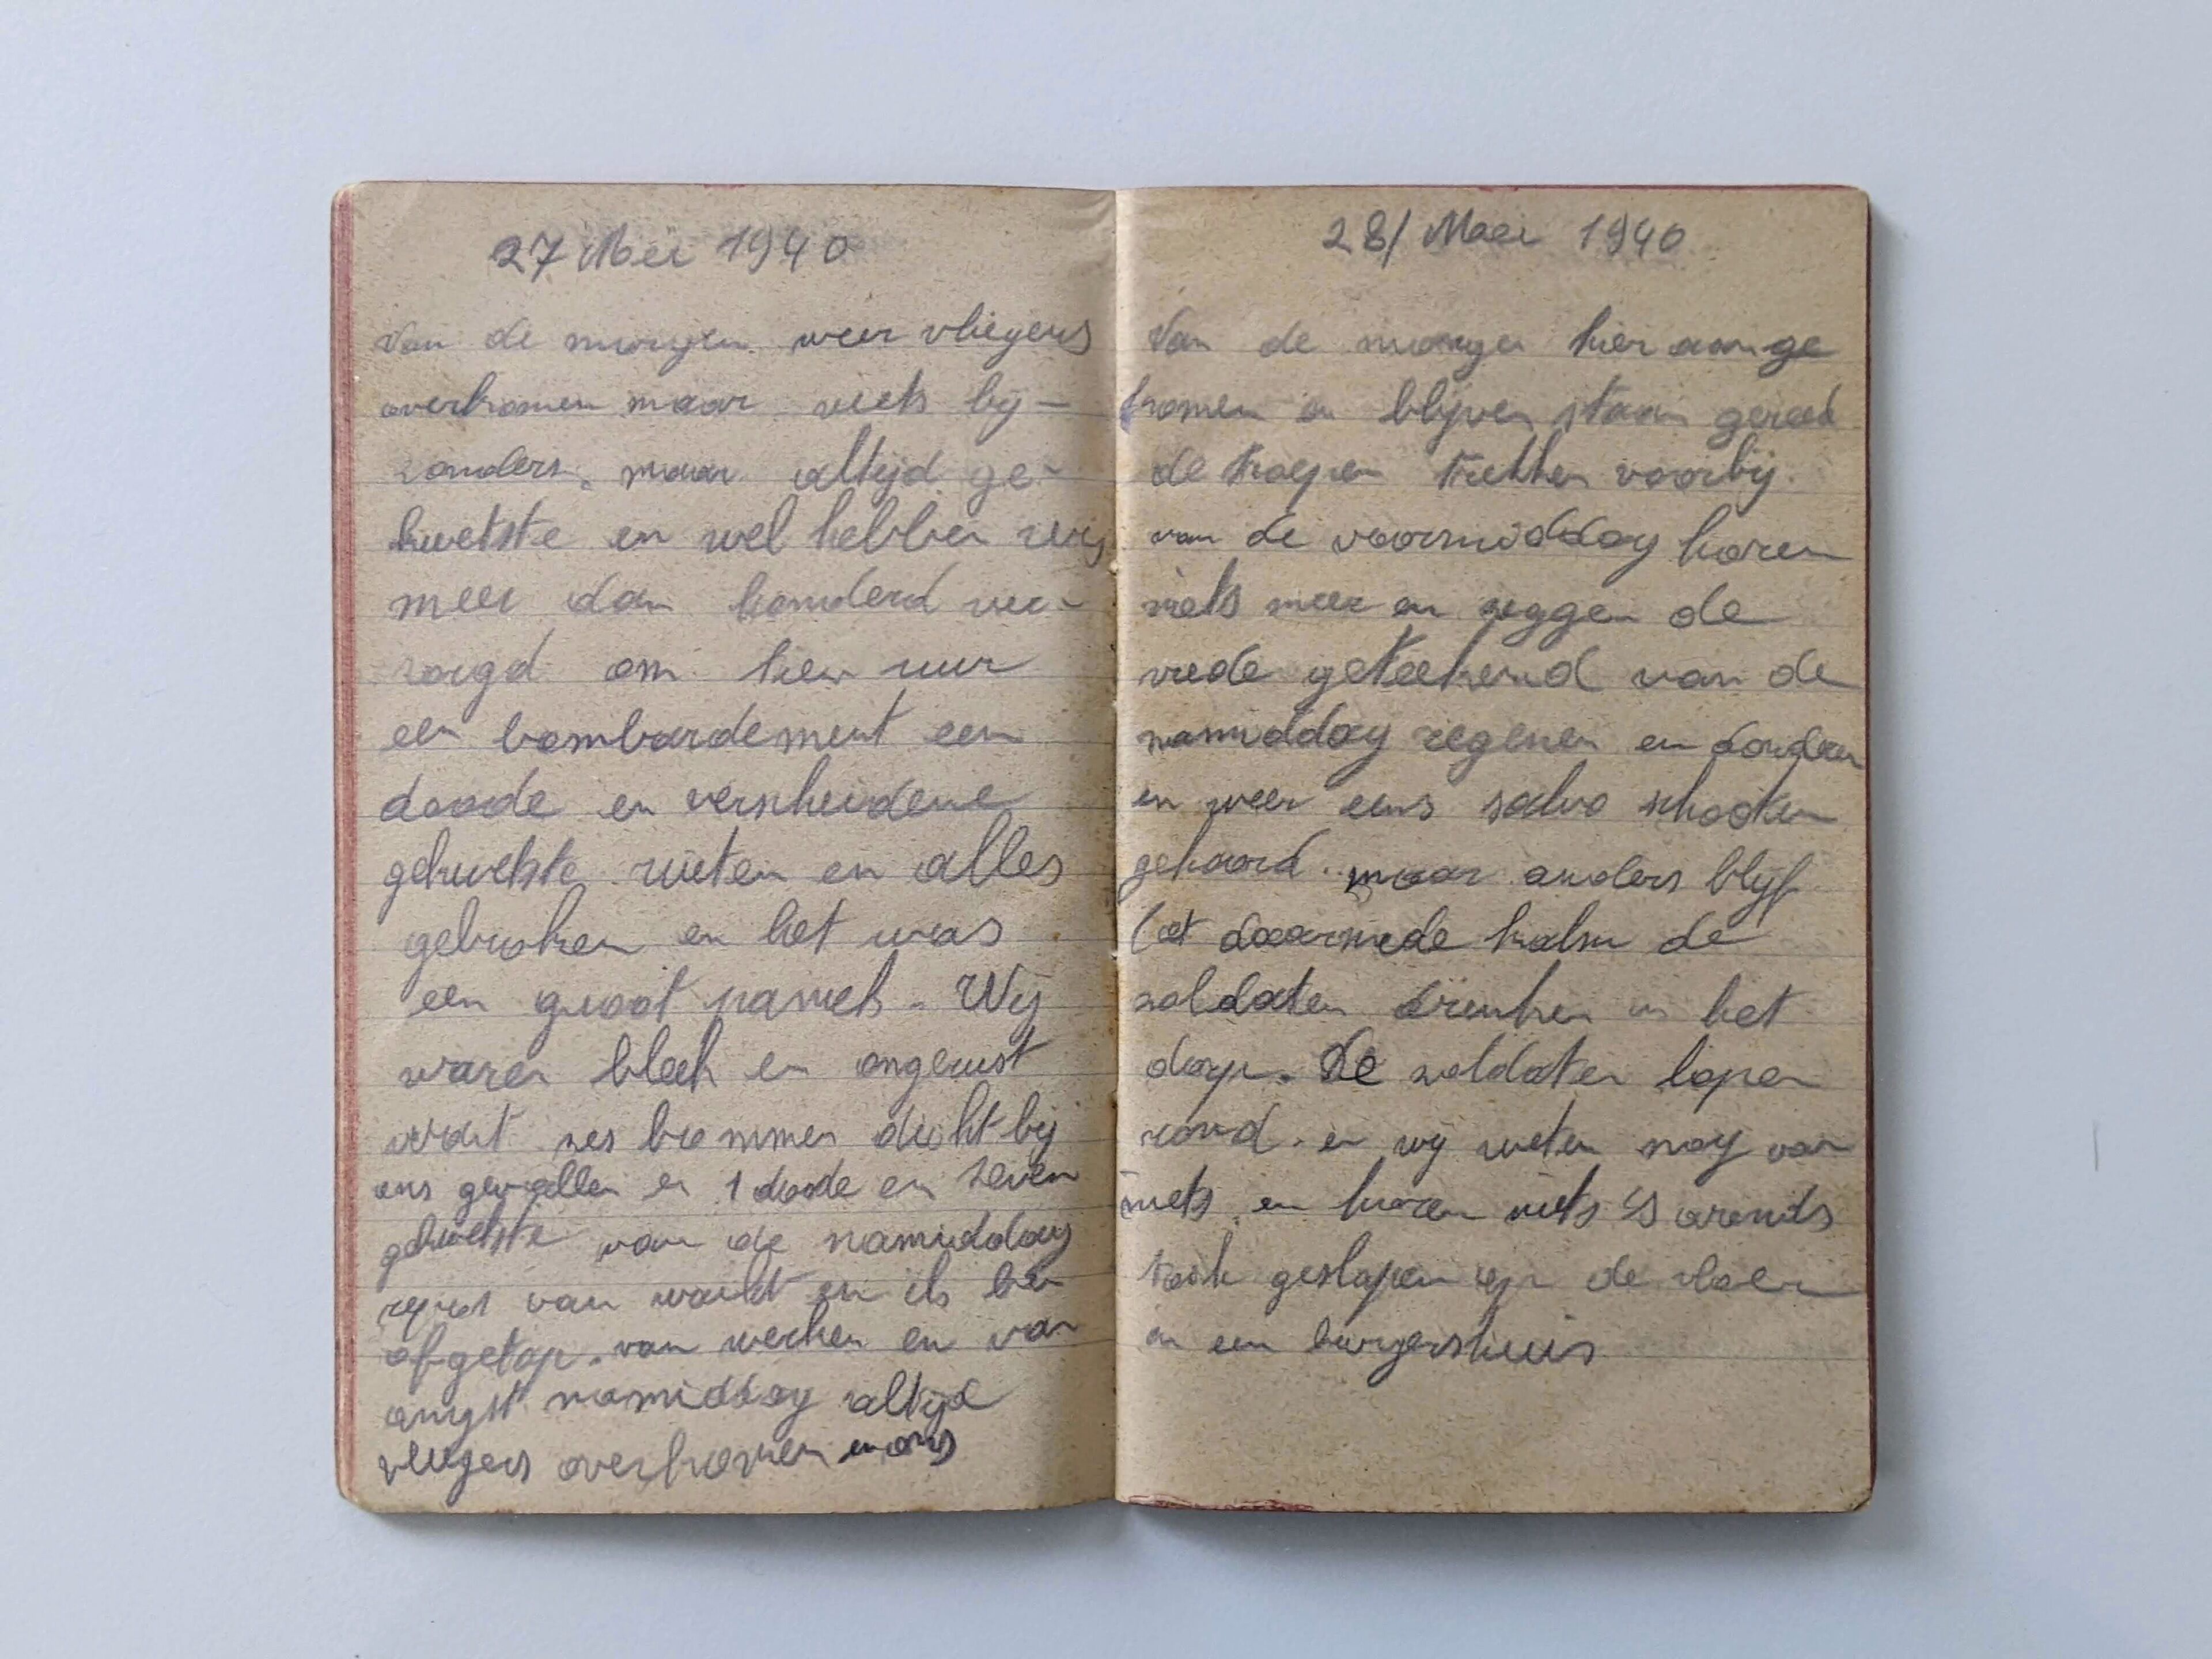 27 Mei 1940
Van de morgen weer vliegers
overkomen maar niets bij-
zonders. maar altijd ge-
kwetste en wel hebben wij
meer dan honderd ver-
zorgd om tien uur
een bombardement een
doode en verscheidene
gekwetste ruiten en alles
gebroken en het was
een groot paniek. Wij
waren bleek en ongerust
want zes bommen dicht bij
ons gevallen en 1 doode en zeven
gekwetste van de namiddag
repos van wacht en ik ben
afgetap. van werken en van
angst namiddag altijd
vliegers overkomen en ons
28/ Maei 1940
Van de morgen hier aan ge
komen en blijven staan gereed
de troepen trekken voorbij.
van de voormiddag horen
niets meer en zeggen de
vrede geteekend van de
namiddag regenen en donderen
en weer eens salvo schooten
gehoord. maar anders blijf
het daarmede kalm de
soldaten drinken in het
dorp. De soldaten lopen
rond. en wij weten nog van
niets. en horen niets 's avends
geslapen op de vloer
in een burgershuis